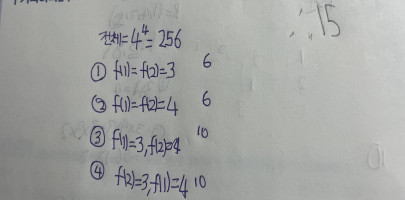 전체=4⁴=256
① f(1)=f(2)=3 6
② f(1)=f(2)=4 6
③ f(1)=3, f(2)=4 10
④ f(2)=3, f(1)=4 10
∴ 15